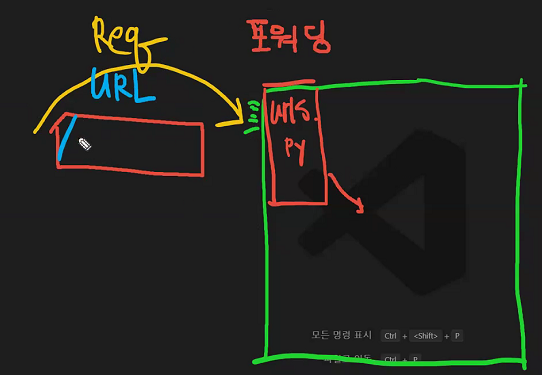 Req
URL
포워딩
urls.
py
모든 명령 표시 Ctrl + <Shift> + P
Ctrl + P